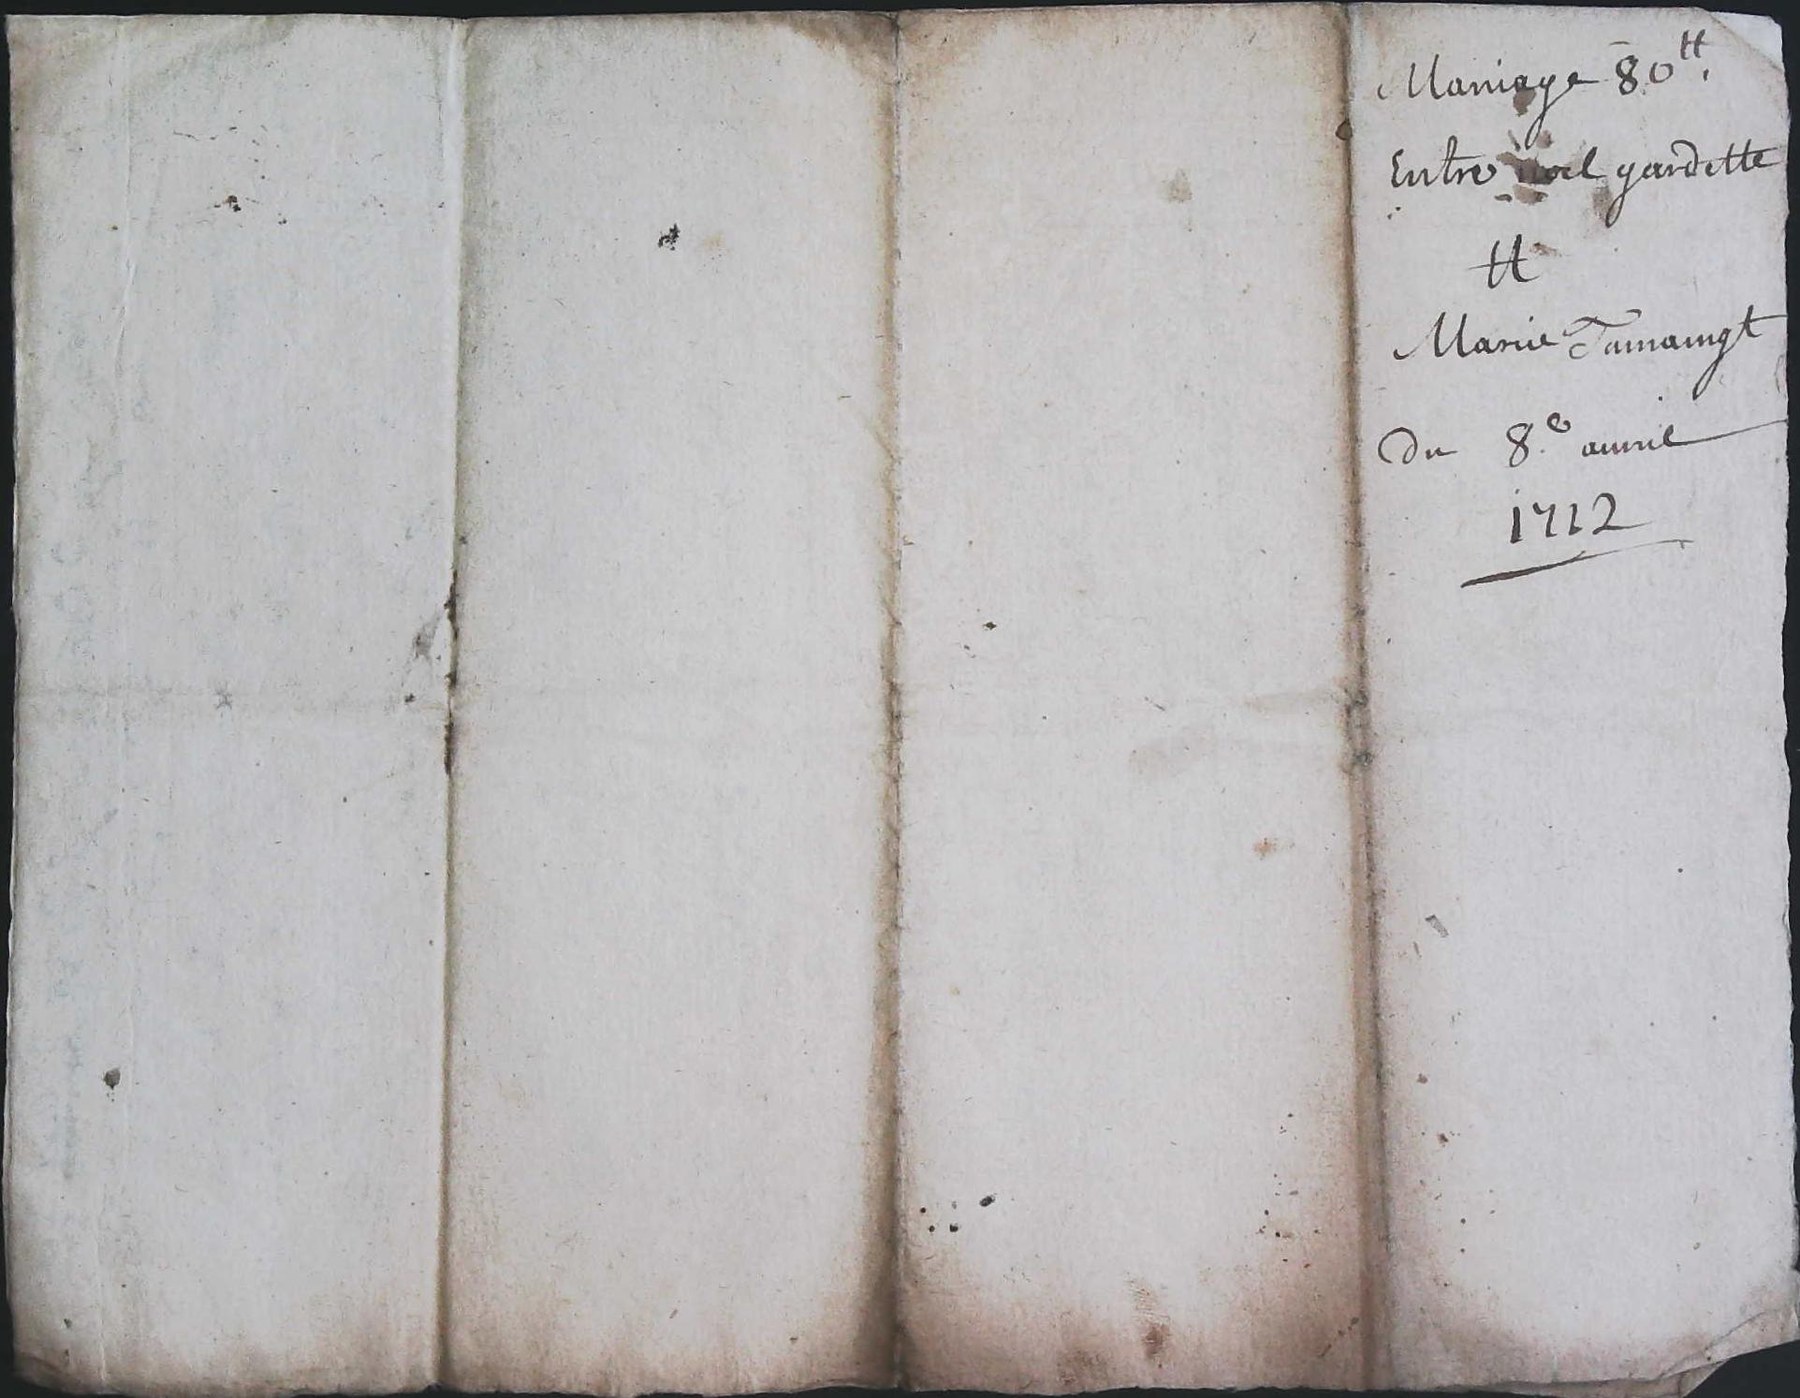 Mariage 80ᵗᵗ.
Entre noel gardette
tt
Marie Tamaingt
Du 8.e auril
1712